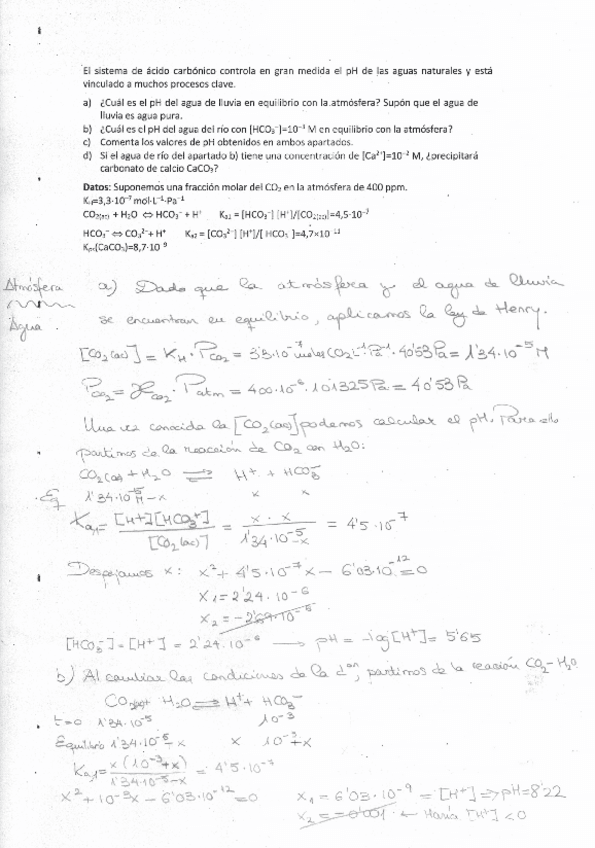 El sistema de ácido carbónico controla en gran medida el pH de las aguas naturales y está
vinculado a muchos procesos clave.
a) ¿Cuál es el pH del agua de lluvia en equilibrio con la atmósfera? Supón que el agua de
lluvia es agua pura.
b) ¿Cuál es el pH del agua del río con [HCO₃⁻]=10⁻³ M en equilibrio con la atmósfera?
c) Comenta los valores de pH obtenidos en ambos apartados.
d) Si el agua de río del apartado b) tiene una concentración de [Ca²⁺]=10⁻² M, ¿precipitará
carbonato de calcio CaCO₃?
Datos: Suponemos una fracción molar del CO₂ en la atmósfera de 400 ppm.
K_H=3,3·10⁻⁷ mol·L⁻¹·Pa⁻¹
CO₂₍ₐq₎ + H₂O ⇔ HCO₃⁻ + H⁺ Ka1 = [HCO₃⁻] [H⁺]/[CO₂₍ₐq₎]=4,5·10⁻⁷
HCO₃⁻ ⇔ CO₃²⁻ + H⁺ Ka2 = [CO₃²⁻] [H⁺]/[ HCO₃ ]=4,7×10⁻¹¹
Kps(CaCO₃)=8,7·10⁻⁹
Atmósfera
Agua
a) Dado que la atmósfera y el agua de lluvia
se encuentran en equilibrio, aplicamos la ley de Henry.
[CO₂(ac)] = K_H · P_CO₂ = 3'3·10⁻⁷ moles CO₂ L⁻¹ Pa⁻¹ · 40'53 Pa = 1'34·10⁻⁵ M
P_CO₂ = X_CO₂ · Patm = 400·10⁻⁶ · 101325 Pa = 40'53 Pa
Una vez conocida la [CO₂(ac)] podemos calcular el pH. Para ello
partimos de la reacción de CO₂ con H₂O:
CO₂(ac) + H₂O ⇌ H⁺ + HCO₃⁻
Eq 1'34·10⁻⁵ M - x x x
Ka,1 = [H⁺][HCO₃⁻] / [CO₂(ac)] = x · x / 1'34·10⁻⁵-x = 4'5·10⁻⁷
Despejamos x: x² + 4'5·10⁻⁷x - 6'03·10⁻¹² = 0
x₁ = 2'24·10⁻⁶
x₂ = -2'69·10⁻⁶
[HCO₃⁻] = [H⁺] = 2'24·10⁻⁶ → pH = -log[H⁺] = 5'65
b) Al cambiar las condiciones de la dᵒⁿ, partimos de la reacción CO₂-H₂O
CO₂(ac) + H₂O ⇌ H⁺ + HCO₃⁻
t=0 1'34·10⁻⁵ 10⁻³
Equilibrio 1'34·10⁻⁵-x x 10⁻³+x
Ka,1 = x(10⁻³+x) / 1'34·10⁻⁵-x = 4'5·10⁻⁷
x² + 10⁻³x - 6'03·10⁻¹² = 0 x₁ = 6'03·10⁻⁹ = [H⁺] ⇒ pH = 8'22
x₂ = -0'001 ← Haría [H⁺] < 0